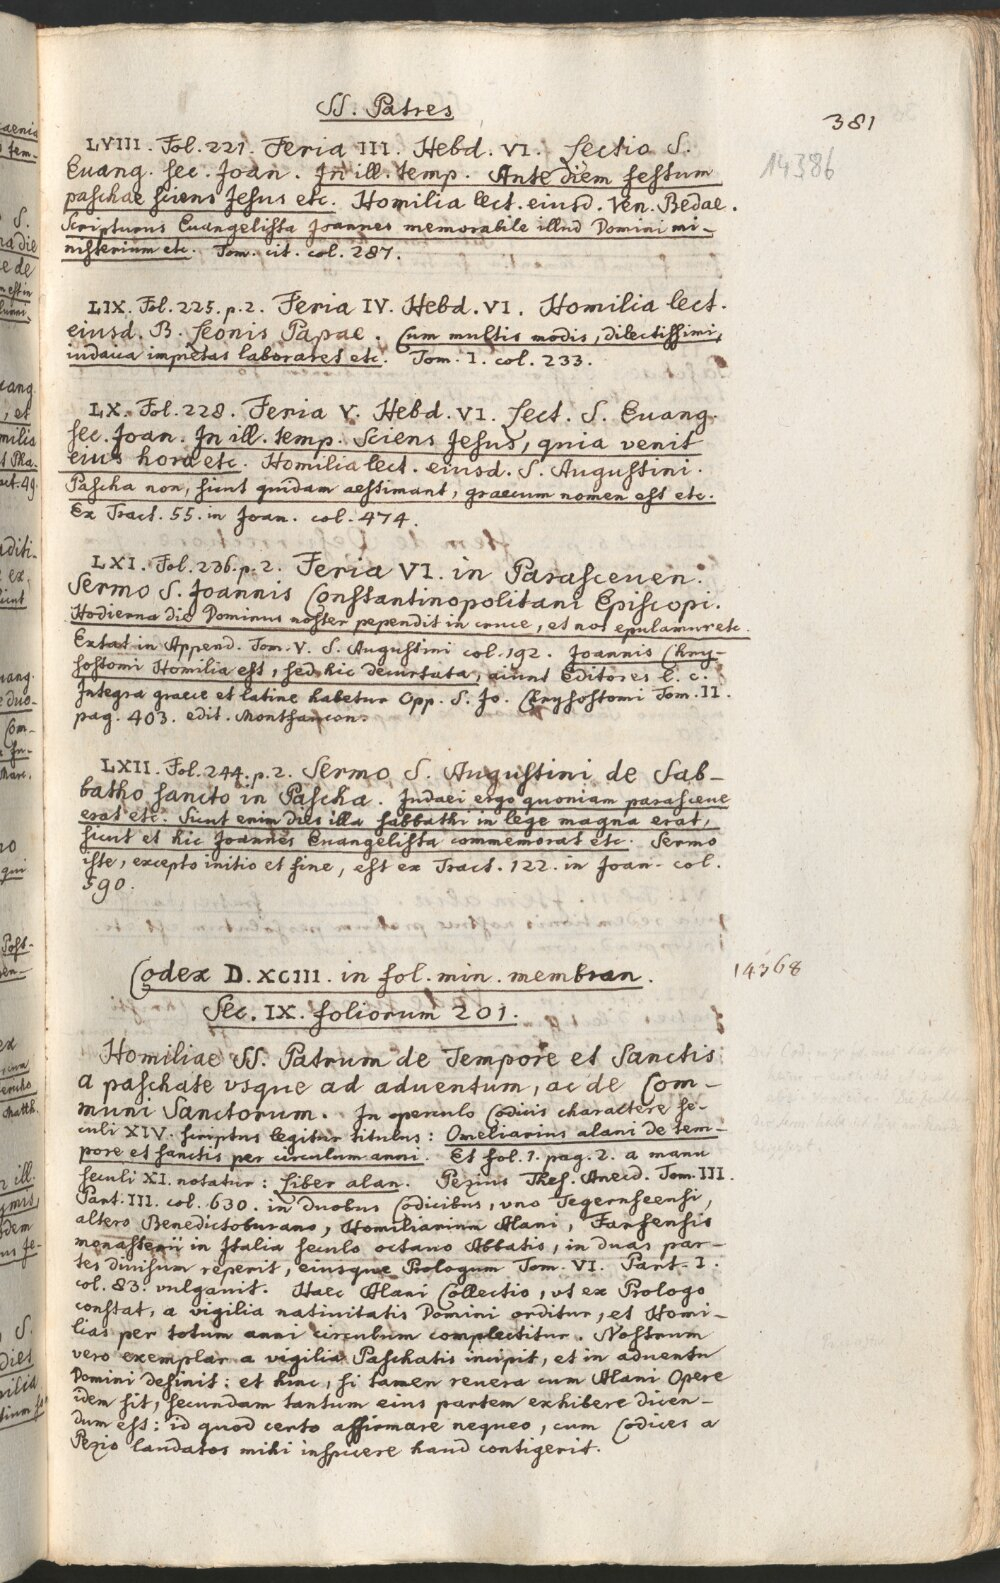 SS. Patres
381
14386
LVIII. Fol. 221. Feria III. Hebd. VI. Lectio S.
Euang. sec. Joan. In ill. temp. Ante diem festum
paschae sciens Jesus etc. Homilia lect. eiusd. Ven. Bedae.
Scripturus Euangelista Joannes memorabile illud Domini mi-
nisterium etc. Tom. cit. col. 287.
LIX. Fol. 225. p. 2. Feria IV. Hebd. VI. Homilia lect.
eiusd. B. Leonis Papae. Cum multis modis, dilectissimi,
iudaica impietas laboraret etc. Tom. I. col. 233.
LX. Fol. 228. Feria V. Hebd. VI. Lect. S. Euang.
sec. Joan. In ill. temp. Sciens Jesus, quia venit
eius hora etc. Homilia lect. eiusd. S. Augustini.
Pascha non, sicut quidam aestimant, graecum nomen est etc.
Ex Tract. 55. in Joan. col. 474.
LXI. Fol. 236. p. 2. Feria VI. in Parasceuen.
Sermo S. Joannis Constantinopolitani Episcopi.
Hodierna die Dominus noster pependit in cruce, et nos epulamur etc.
Extat in Append. Tom. V. S. Augustini col. 192. Joannis Chry-
sostomi Homilia est, sed hic decurtata, aiunt Editores l. c.
Integra graece et latine habetur Opp. S. Jo. Chrysostomi Tom. II.
pag. 403. edit. Montfaucon.
LXII. Fol. 244. p. 2. Sermo S. Augustini de Sab-
batho sancto in Pascha. Judaei ergo quoniam parasceue
erat etc. Sicut enim dies illa sabbathi in lege magna erat,
sicut et hic Joannes Euangelista commemorat etc. Sermo
iste, excepto initio et fine, est ex Tract. 122. in Joan. col.
590.
Codex D. XCIII. in fol. min. membran.
14368
Sec. IX. foliorum 201.
Homiliae SS. Patrum de Tempore et Sanctis
a paschate vsque ad aduentum, ac de Com-
muni Sanctorum. In operculo Codicis charactere se-
culi XIV. scriptus legitur titulus: Omeliarius alani de tem-
pore et sanctis per circulum anni. Et fol. 1. pag. 2. a manu
seculi XI. notatur: Liber alan. Pezius Thes. Anecd. Tom. III.
Part. III. col. 630. in duobus Codicibus, vno Tegernseensi,
altero Benedictoburano, Homiliarium Alani, Farfensis
monasterii in Italia seculo octauo Abbatis, in duas par-
tes diuisum reperit, eiusque Prologum Tom. VI. Part. I.
col. 83. vulgauit. Haec Alani Collectio, vt ex Prologo
constat, a vigilia natiuitatis Domini orditur, et Homi-
lias per totum anni circulum complectitur. Nostrum
vero exemplar a vigilia Paschatis incipit, et in aduentu
Domini desinit: et hinc, si tamen reuera cum Alani Opere
idem sit, secundam tantum eius partem exhibere dicen-
dum est: id quod certo affirmare nequeo, cum Codices a
Pezio laudatos mihi inspicere haud contigerit.